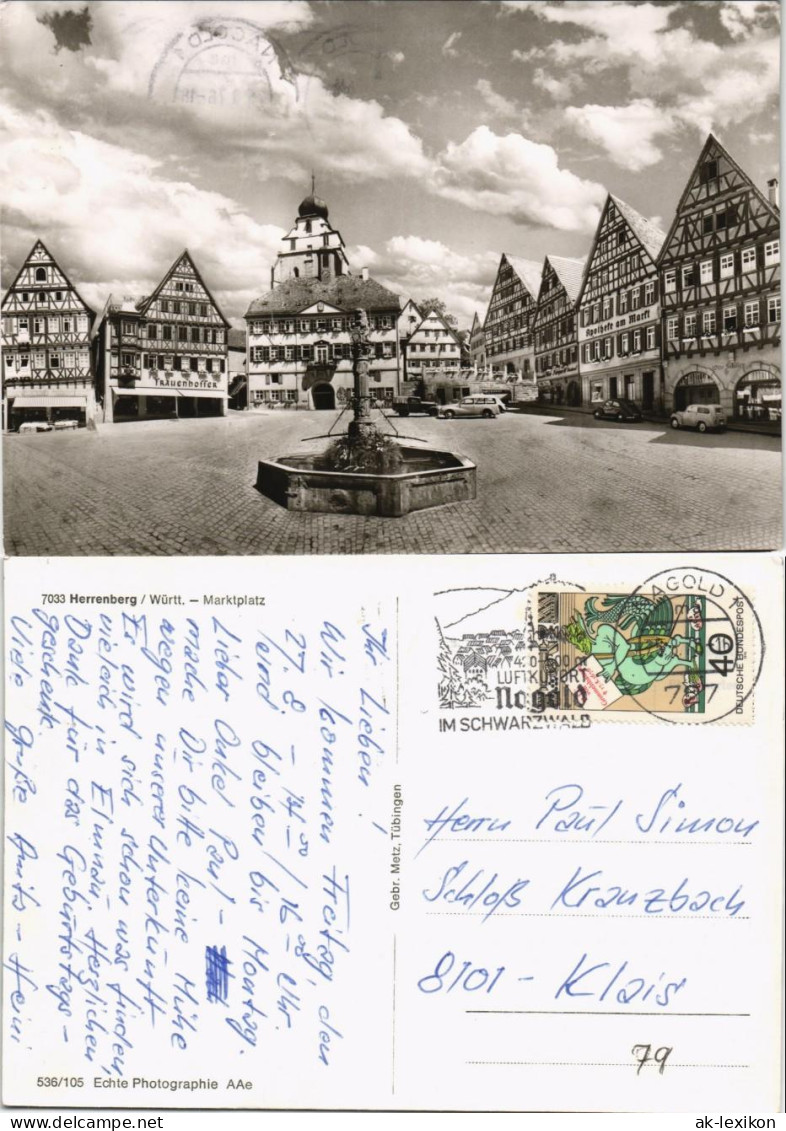 TRAUENHOFFER
Apotheke am Markt
7033 Herrenberg / Württ. – Marktplatz
Ihr Lieben!
Wir kommen Freitag, den
27. 8. – 14.00 / 16.00 Uhr.
und bleiben bis Montag.
Lieber Onkel Paul –
mache Dir bitte keine Mühe
wegen unserer Unterkunft
Es wird sich schon was finden,
vieleich in Elmau. Herzlichen
Dank für das Geburtstags-
geschenk.
Viele Grüße Anita – Heini
536/105 Echte Photographie AAe
Gebr. Metz, Tübingen
LUFTKURORT
Nagold
IM SCHWARZWALD
NAGOLD
40
DEUTSCHE BUNDESPOST
Herrn Paul Simon
Schloß Kranzbach
8101 – Klais
79
www.delcampe.net
ak-lexikon